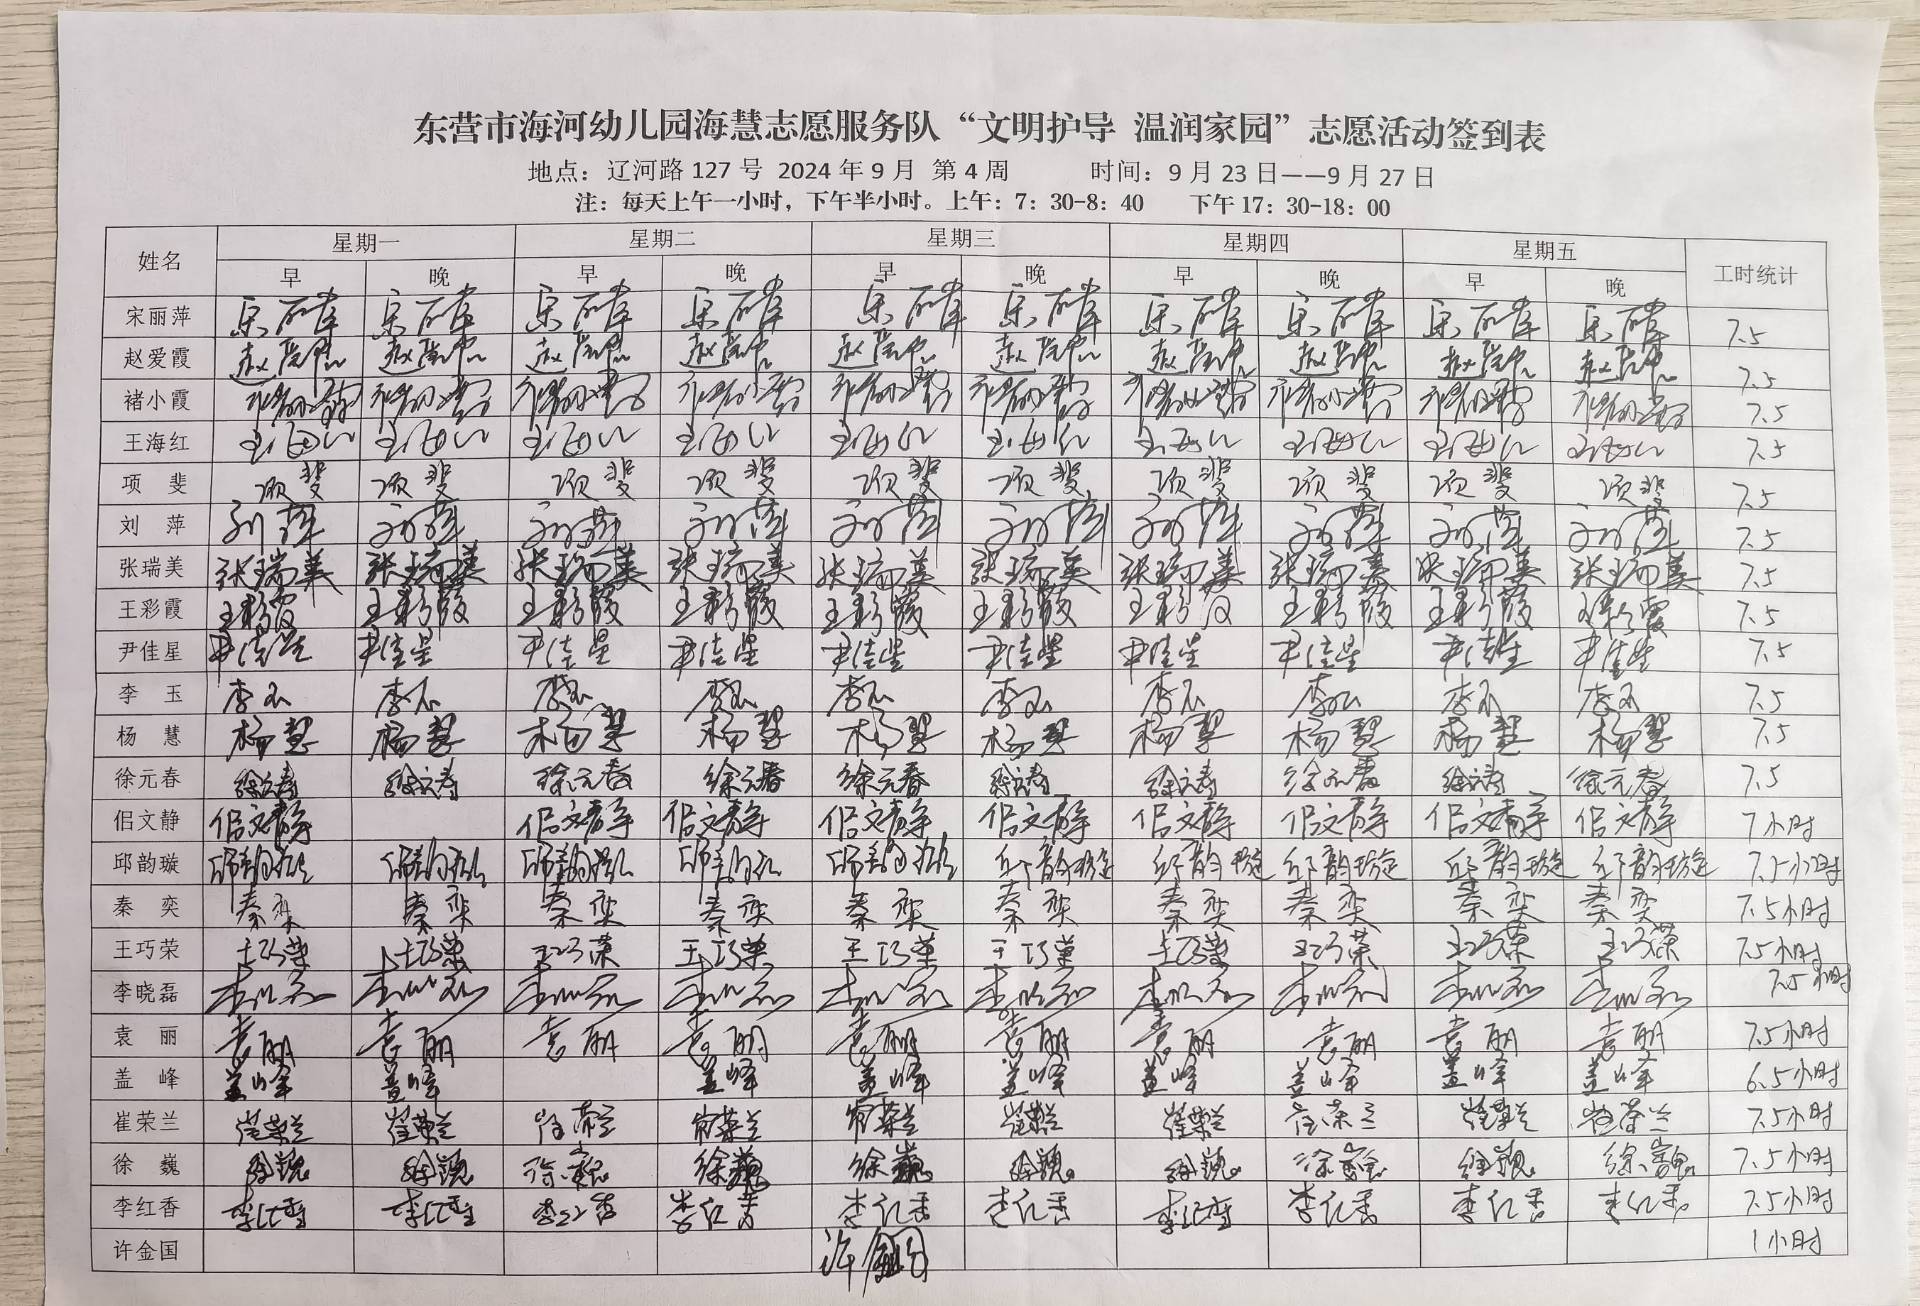 东营市海河幼儿园海慧志愿服务队“文明护导 温润家园”志愿活动签到表
地点：辽河路 127 号 2024 年 9 月 第 4 周 时间：9 月 23 日——9 月 27 日
注：每天上午一小时，下午半小时。上午：7：30-8：40 下午 17：30-18：00
姓名 星期一 星期二 星期三 星期四 星期五 工时统计
早 晚 早 晚 早 晚 早 晚 早 晚
宋丽萍 宋丽萍 宋丽萍 宋丽萍 宋丽萍 宋丽萍 宋丽萍 宋丽萍 宋丽萍 宋丽萍 宋丽萍 7.5
赵爱霞 赵爱霞 赵爱霞 赵爱霞 赵爱霞 赵爱霞 赵爱霞 赵爱霞 赵爱霞 赵爱霞 赵爱霞 7.5
褚小霞 褚小霞 褚小霞 褚小霞 褚小霞 褚小霞 褚小霞 褚小霞 褚小霞 褚小霞 褚小霞 7.5
王海红 王海红 王海红 王海红 王海红 王海红 王海红 王海红 王海红 王海红 王海红 7.5
项 斐 项斐 项斐 项斐 项斐 项斐 项斐 项斐 项斐 项斐 项斐 7.5
刘 萍 刘萍 刘萍 刘萍 刘萍 刘萍 刘萍 刘萍 刘萍 刘萍 刘萍 7.5
张瑞美 张瑞美 张瑞美 张瑞美 张瑞美 张瑞美 张瑞美 张瑞美 张瑞美 张瑞美 张瑞美 7.5
王彩霞 王彩霞 王彩霞 王彩霞 王彩霞 王彩霞 王彩霞 王彩霞 王彩霞 王彩霞 王彩霞 7.5
尹佳星 尹佳星 尹佳星 尹佳星 尹佳星 尹佳星 尹佳星 尹佳星 尹佳星 尹佳星 尹佳星 7.5
李 玉 李玉 李玉 李玉 李玉 李玉 李玉 李玉 李玉 李玉 李玉 7.5
杨 慧 杨慧 杨慧 杨慧 杨慧 杨慧 杨慧 杨慧 杨慧 杨慧 杨慧 7.5
徐元春 徐元春 徐元春 徐元春 徐元春 徐元春 徐元春 徐元春 徐元春 徐元春 徐元春 7.5
佀文静 佀文静 佀文静 佀文静 佀文静 佀文静 佀文静 佀文静 佀文静 佀文静 7小时
邱韵璇 邱韵璇 邱韵璇 邱韵璇 邱韵璇 邱韵璇 邱韵璇 邱韵璇 邱韵璇 邱韵璇 邱韵璇 7.5小时
秦 奕 秦奕 秦奕 秦奕 秦奕 秦奕 秦奕 秦奕 秦奕 秦奕 秦奕 7.5小时
王巧荣 王巧荣 王巧荣 王巧荣 王巧荣 王巧荣 王巧荣 王巧荣 王巧荣 王巧荣 王巧荣 7.5小时
李晓磊 李晓磊 李晓磊 李晓磊 李晓磊 李晓磊 李晓磊 李晓磊 李晓磊 李晓磊 李晓磊 7.5小时
袁 丽 袁丽 袁丽 袁丽 袁丽 袁丽 袁丽 袁丽 袁丽 袁丽 袁丽 7.5小时
盖 峰 盖峰 盖峰 盖峰 盖峰 盖峰 盖峰 盖峰 盖峰 盖峰 6.5小时
崔荣兰 崔荣兰 崔荣兰 崔荣兰 崔荣兰 崔荣兰 崔荣兰 崔荣兰 崔荣兰 崔荣兰 崔荣兰 7.5小时
徐 巍 徐巍 徐巍 徐巍 徐巍 徐巍 徐巍 徐巍 徐巍 徐巍 徐巍 7.5小时
李红香 李红香 李红香 李红香 李红香 李红香 李红香 李红香 李红香 李红香 李红香 7.5小时
许金国 许金国 1小时